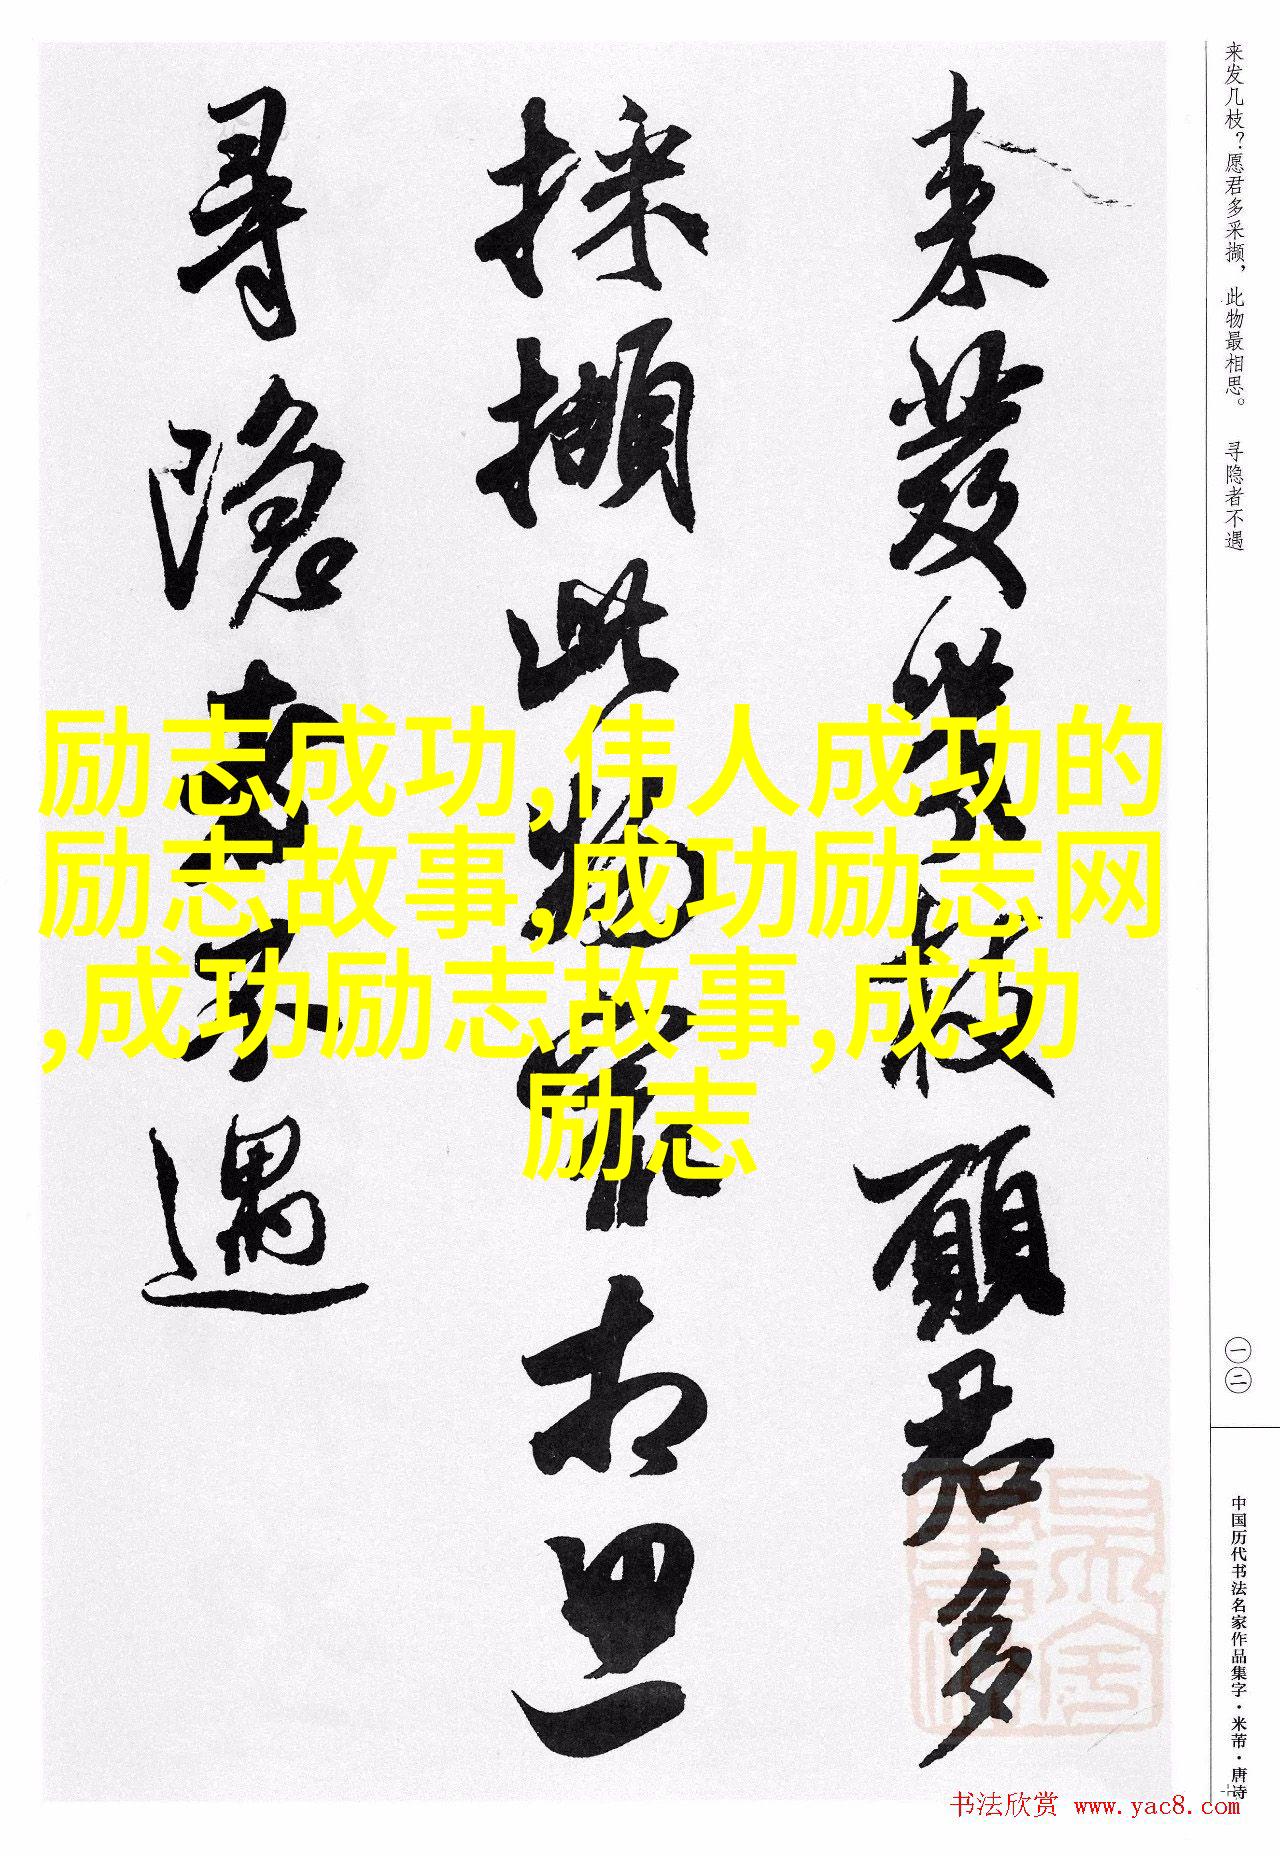 来发几枝？愿君多采撷，此物最相思。　寻隐者不遇
一二
中国历代书法名家作品集字·米芾·唐诗
来發幾枝願君多
採擷此物最相思
尋隐者不遇
励志成功,伟人成功的
励志故事,成功励志网
,成功励志故事,成功
励志
书法欣赏 www.yac8.com